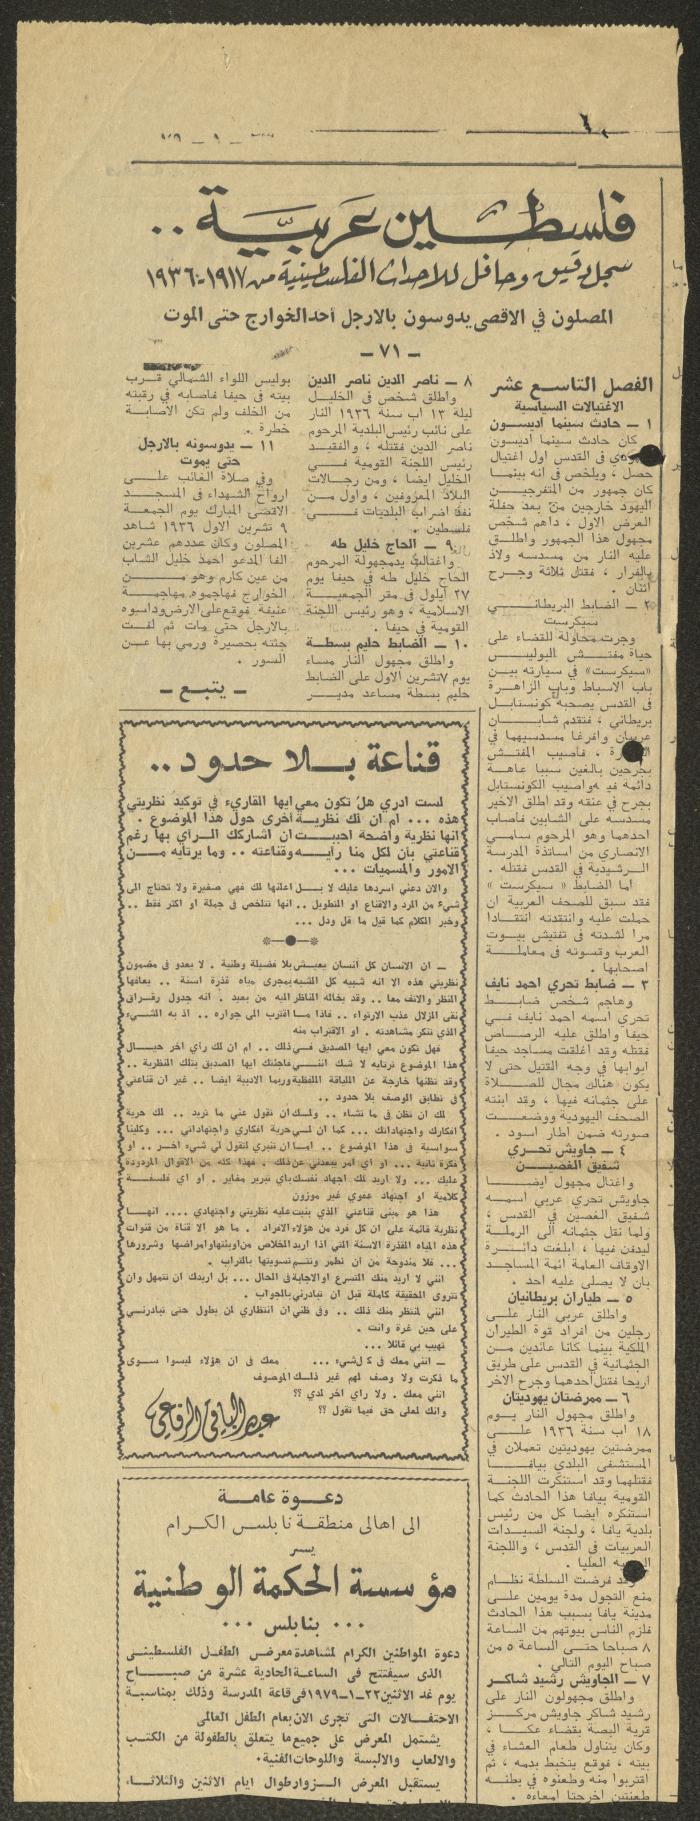 ٦
فلسطين عربية ..
سجل دقيق وحافل للاحداث الفلسطينية من ١٩١٧-١٩٣٦
المصلون في الاقصى يدوسون بالارجل احد الخوارج حتى الموت
- ٧١ -
الفصل التاسع عشر
الاغتيالات السياسية
١ ـ حادث سينما اديسون
كان حادث سينما اديسون
في القدس اول اغتيال
حصل ، ويلخص في انه بينما
كان جمهور من المتفرجين
اليهود خارجين من بعد حفلة
العرض الاول ، داهم شخص
مجهول هذا الجمهور واطلق
عليه النار من مسدسه ولاذ
بالفرار ، فقتل ثلاثة وجرح
اثنان .
٢ ـ الضابط البريطاني
سيكرست
وجرت محاولة للقضاء على
حياة مفتش البوليس
«سيكرست» في سيارته بين
باب الاسباط وباب الزاهرة
في القدس يصحبه كونستابل
بريطاني ، فتقدم شابان
عربيان وافرغا مسدسيهما في
. فاصيب المفتش
بجرحين بالغين سببا عاهة
دائمة فيه واصيب الكونستابل
بجرح في عنقه وقد اطلق الاخير
مسدسه على الشابين فاصاب
احدهما وهو المرحوم سامي
الانصاري من اساتذة المدرسة
الرشيدية في القدس فقتله .
اما الضابط « سيكرست »
فقد سبق للصحف العربية ان
حملت عليه وانتقدته انتقادا
مرا لشدته في تفتيش بيوت
العرب وقسوته في معاملة
اصحابها .
٣ ـ ضابط تحري احمد نايف
وهاجم شخص ضابط
تحري اسمه احمد نايف في
حيفا واطلق عليه الرصاص
فقتله وقد اغلقت مساجد حيفا
ابوابها في وجه القتيل حتى لا
يكون هنالك مجال للصلاة
على جثمانه فيها ، وقد ابنته
الصحف اليهودية ووضعت
صورته ضمن اطار اسود .
٤ ـ جاويش تحري
شفيق الغصين
واغتال مجهول ايضا
جاويش تحري عربي اسمه
شفيق الغصين في القدس ،
ولما نقل جثمانه الى الرملة
ليدفن فيها ، ابلغت دائرة
الاوقاف العامة ائمة المساجد
بان لا يصلى عليه احد .
٥ ـ طياران بريطانيان
واطلق عربي النار على
رجلين من افراد قوة الطيران
الملكية بينما كانا عائدين من
الجثمانية في القدس على طريق
اريحا فقتل احدهما وجرح الاخر
٦ ـ ممرضتان يهوديتان
واطلق مجهول النار يوم
١٨ اب سنة ١٩٣٦ على
ممرضتين يهوديتين تعملان في
المستشفى البلدي بيافا
فقتلهما وقد استنكرت اللجنة
القومية بيافا هذا الحادث كما
استنكره ايضا كل من رئيس
بلدية يافا ، ولجنة السيدات
العربيات في القدس ، واللجنة
العليا .
وقد فرضت السلطة نظام
منع التجول مدة يومين على
مدينة يافا بسبب هذا الحادث
فلزم الناس بيوتهم من الساعة
٨ صباحا حتى الساعة ٥ من
صباح اليوم التالي .
٧ ـ الجاويش رشيد شاكر
واطلق مجهولون النار على
رشيد شاكر جاويش مركز
قرية البصة بقضاء عكا ،
وكان يتناول طعام العشاء في
بيته ، فوقع يتخبط بدمه ، ثم
اقتربوا منه وطعنوه في بطنه
طعنتين اخرجتا امعاءه .
٨ ـ ناصر الدين ناصر الدين
واطلق شخص في الخليل
ليلة ١٣ اب سنة ١٩٣٦ النار
على نائب رئيس البلدية المرحوم
ناصر الدين فقتله ، والفقيد
رئيس اللجنة القومية في
الخليل ايضا ، ومن رجالات
البلاد المعروفين ، واول من
نفذ اضراب البلديات في
فلسطين .
٩ ـ الحاج خليل طه
واغتالت يد مجهولة المرحوم
الحاج خليل طه في حيفا يوم
٢٧ ايلول في مقر الجمعية
الاسلامية ، وهو رئيس اللجنة
القومية في حيفا .
١٠ ـ الضابط حليم بسطة
واطلق مجهول النار مساء
يوم ٧ تشرين الاول على الضابط
حليم بسطة مساعد مدير
بوليس اللواء الشمالي قرب
بيته في حيفا فاصابه في رقبته
من الخلف ولم تكن الاصابة
خطرة .
١١ ـ يدوسونه بالارجل
حتى يموت
وفي صلاة الغائب على
ارواح الشهداء في المسجد
الاقصى المبارك يوم الجمعة
٩ تشرين الاول ١٩٣٦ شاهد
المصلون وكان عددهم عشرين
الفا المدعو احمد خليل الشاب
من عين كارم وهو من
الخوارج فهاجموه مهاجمة
عنيفة فوقع على الارض وداسوه
بالارجل حتى مات ثم لفت
جثته بحصيرة ورمي بها عن
السور .
ـ يتبع ـ
قناعة بلا حدود ..
لست ادري هل تكون معي ايها القاريء في توكيد نظريتي
هذه ... ام ان لك نظرية أخرى حول هذا الموضوع .
انها نظرية واضحة احببت ان اشاركك الرأي بها رغم
قناعتي بأن لكل منا رأيه وقناعته .. وما يرتأيه من
الامور والمسميات ...
والان دعني اسردها عليك لا بل اعلنها لك فهي صغيرة ولا تحتاج الى
شيء من الرد والاقناع او التطويل .. انها تتلخص في جملة او اكثر فقط ..
وخير الكلام كما قيل ما قل ودل ...
ـ ان الانسان كل انسان يعيش بلا فضيلة وطنية . لا يعدو في مضمون
نظريتي هذه الا انه شبيه كل الشبه بمجرى مياه قذرة اسنة .. يعافها
النظر والانف معا .. وقد يخاله الناظر اليه من بعيد . انه جدول رقراق
نقي الزلال عذب الارتواء .. فاذا ما اقترب الى جواره .. اذ به الشيء
الذي ننكر مشاهدته . او الاقتراب منه
فهل تكون معي ايها الصديق في ذلك .. ام ان لك رأي اخر حيال
هذا الموضوع ترتايه لا شك انني فاجئتك ايها الصديق بتلك النظرية ..
وقد نظنها خارجة عن اللياقة اللفظية وربما الادبية ايضا .. غير ان قناعتي
في تطابق الوصف بلا حدود ..
لك ان تظن في ما تشاء .. ولك ان تقول عني ما تريد .. لك حرية
افكارك واجتهاداتك ... كما ان لي حرية افكاري واجتهاداتي ... وكلينا
سواسية في هذا الموضوع .. اما ان تنبري لتقول لي شيء اخر .. او
فكرة ثانية ... او اي امر يبعدني عن ذلك . فهذا كله من الاقوال المردودة
عليك ... ولا اريد لك اجهاد نفسك باي تبرير مغاير . او اي فلسفة
كلامية او اجتهاد عفوي غير موزون
هذا هو مبنى قناعتي الذي بنيت عليه نظريتي واجتهادي .... انها
نظرية قائمة على ان كل فرد من هؤلاء الافراد . ما هو الا قناة من قنوات
هذه المياه القذرة الاسنة التي اذا اريد الخلاص من اوبئتها وامراضها وشرورها
... فلا مندوحة من ان نطمر ونتم تسويتها بالتراب .
انني لا اريد منك التسرع او الاجابة في الحال ... بل اريدك ان تتمهل وان
تتروى الحقيقة كاملة قبل ان تبادرني بالجواب .
انني لمنتظر منك ذلك .. وفي ظني ان انتظاري لن يطول حتى تبادرني
على حين غرة وانت .
تهيب بي قائلا ...
ـ انني معك في كل شيء ... معك في ان هؤلاء ليسوا سوى
ما ذكرت ولا وصف لهم غير ذلك الموصوف
انني معك . ولا رأي اخر لدي ؟؟
وانك لعلى حق فيما تقول ؟؟
عبد الباقي الرفاعي
دعوة عامة
الى اهالي منطقة نابلس الكرام
يسر
مؤسسة الحكمة الوطنية
... بنابلس ...
دعوة المواطنين الكرام لمشاهدة معرض الطفل الفلسطيني
الذي سيفتتح في الساعة الحادية عشرة من صباح
يوم غد الاثنين ٢٢-١-١٩٧٩ في قاعة المدرسة وذلك بمناسبة
الاحتفالات التي تجرى الان بعام الطفل العالمي
يشتمل المعرض على جميع ما يتعلق بالطفولة من الكتب
والالعاب والالبسة واللوحات الفنية .
يستقبل المعرض الزوار طوال ايام الاثنين والثلاثاء ،